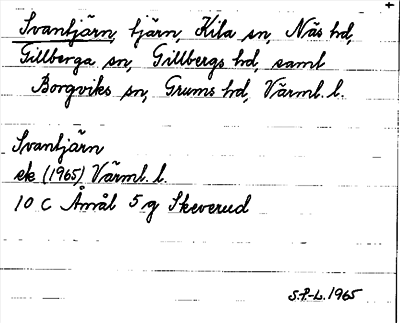 Svantjärn, tjärn, Kila sn, Näs hd,
Gillberga sn, Gillbergs hd, samt
Borgviks sn, Grums hd, Värml. l.
Svantjärn
ek (1965) Värml. l.
10 C Åmål 5 g Skeverud
S.P.-L. 1965